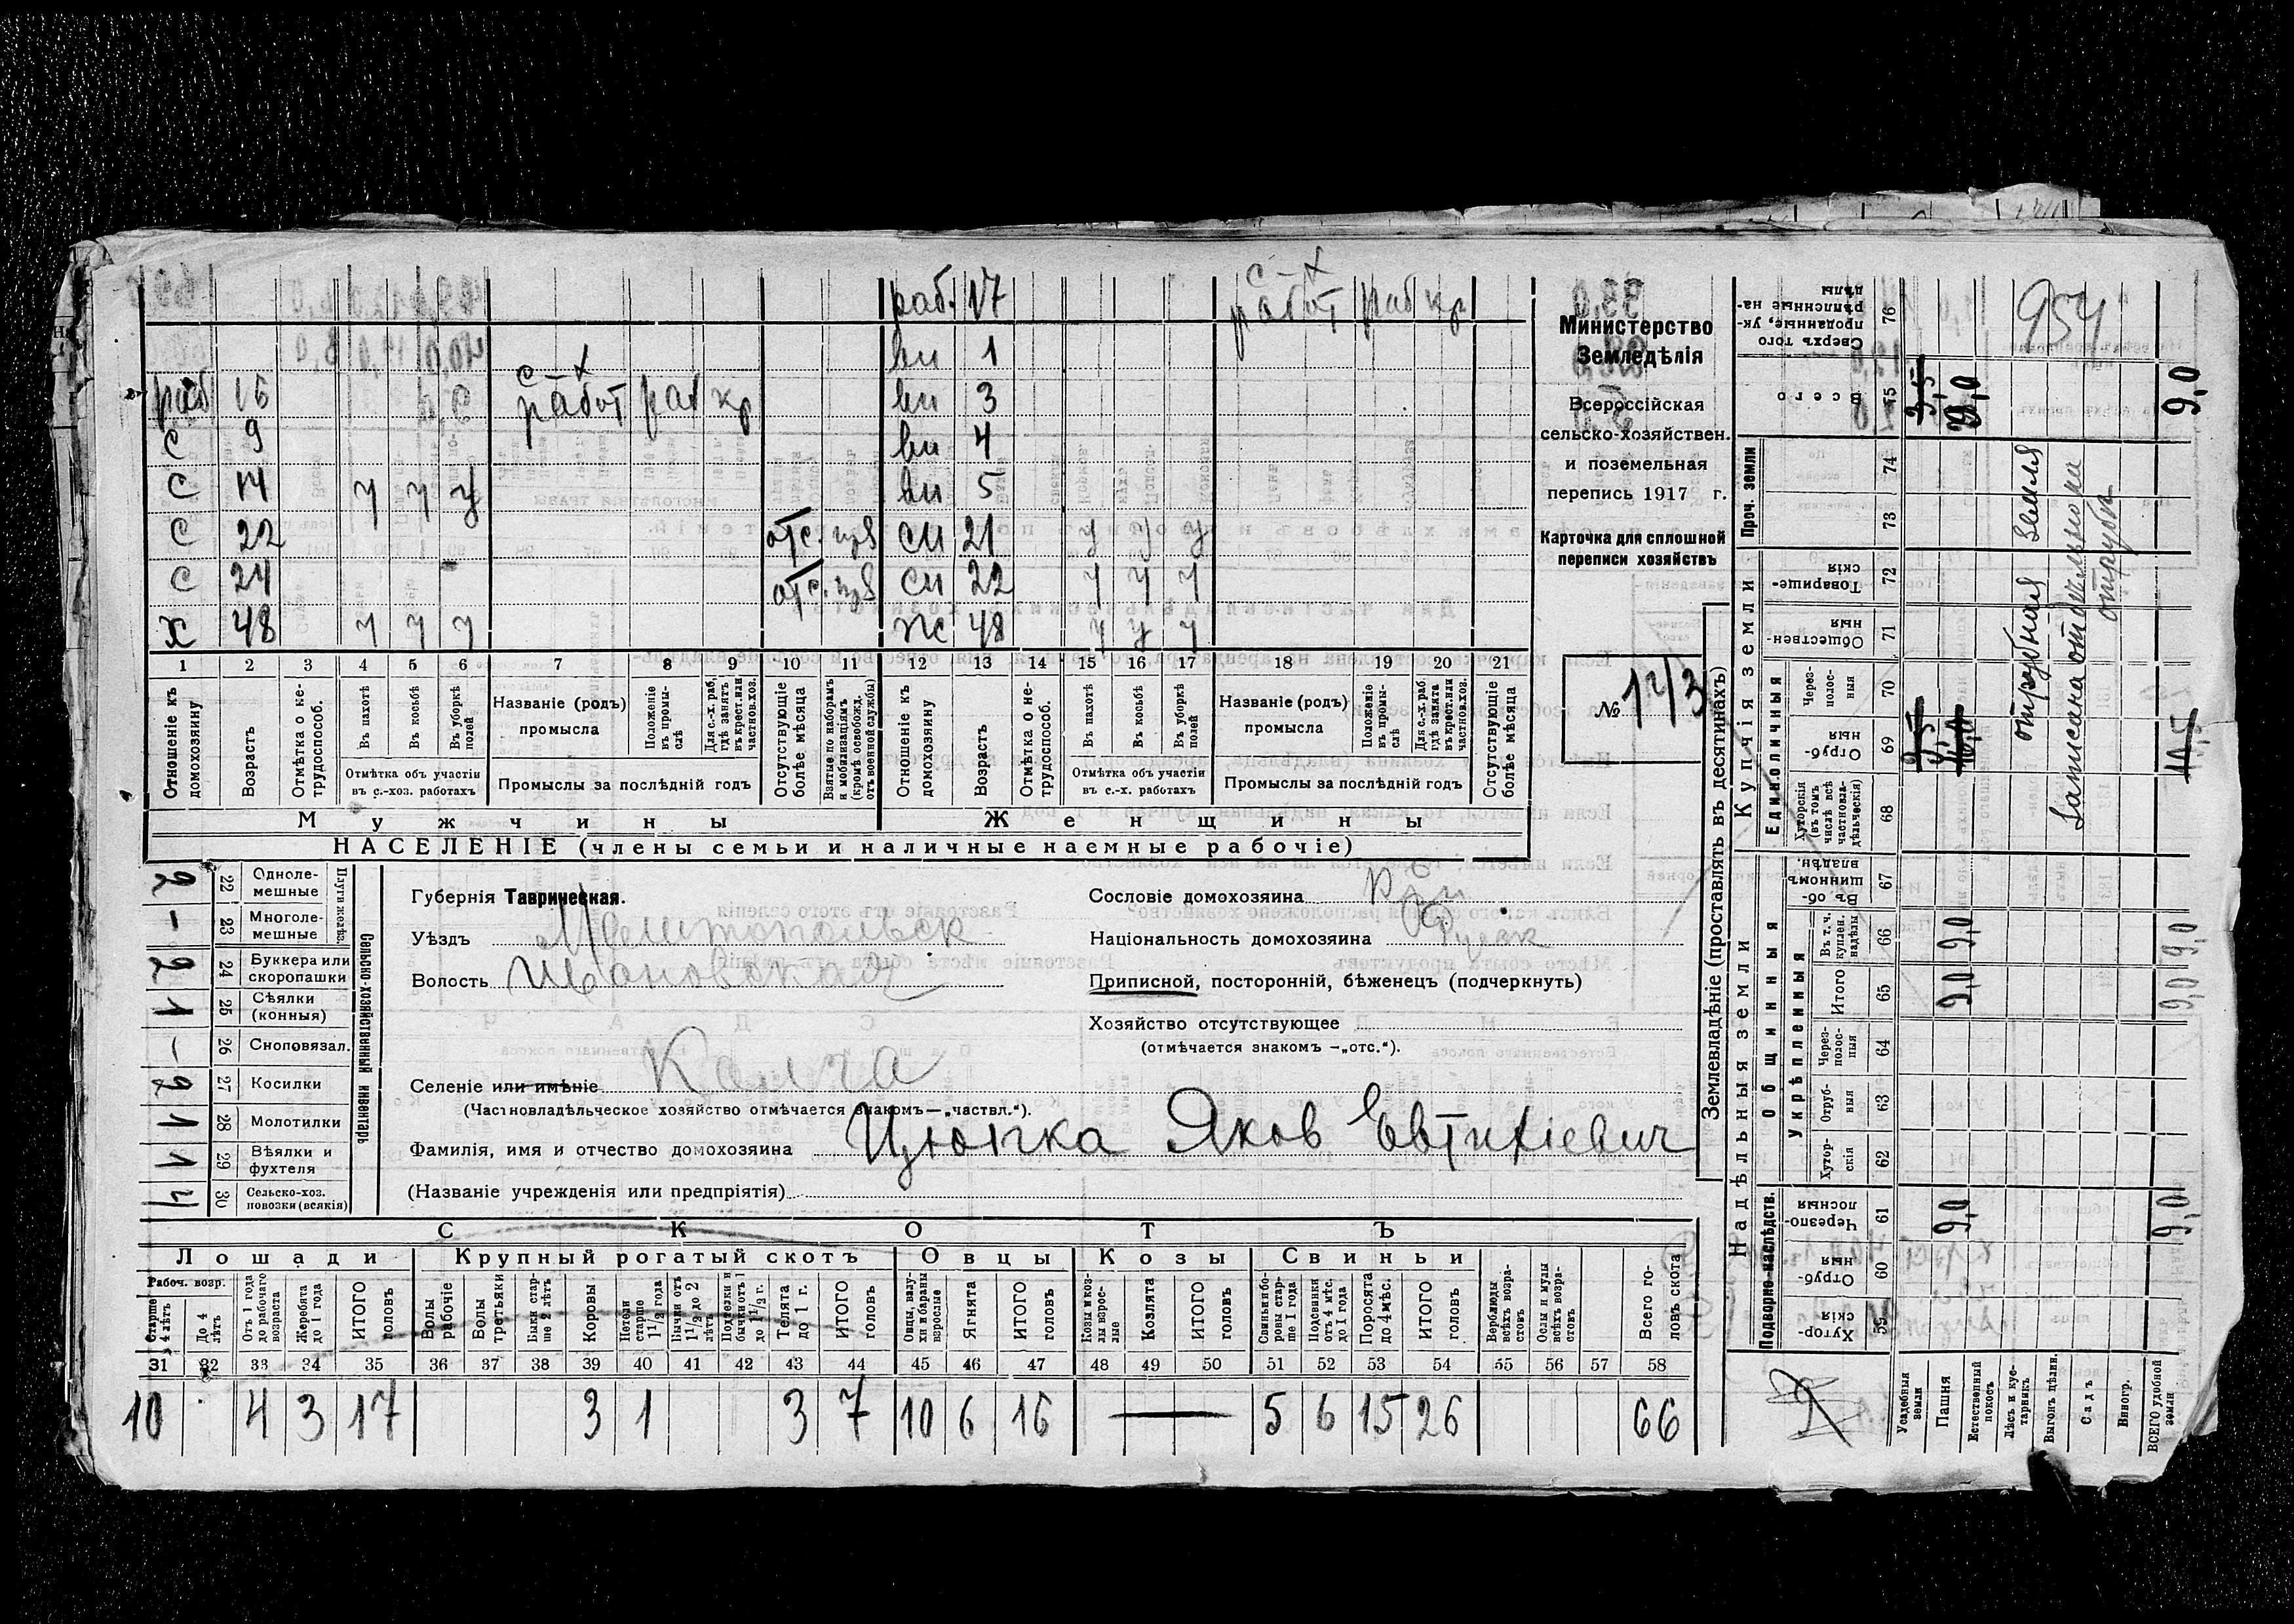 раб. 17 с-х работ раб кр
вн 1
раб 16 с-х работ раб кр вн 3
с 9 вн 4
с 14 у у у вн 5
с 22 отс. сн 21 у у у
с 24 отс. сн 22 у у у
х 48 у у у ж 48 у у у
1 2 3 4 5 6 7 8 9 10 11 12 13 14 15 16 17 18 19 20 21
Отношеніе къ домохозяину.
Возрастъ
Отмѣтка о нетрудоспособ.
Въ пахотѣ
Въ косьбѣ
Въ уборкѣ полей
Отмѣтка объ участіи въ с.-хоз. работахъ
Названіе (родъ) промысла
Положеніе въ промыслѣ
Для с.-х. раб. гдѣ занятъ въ крест. или частнов. хоз.
Промыслы за послѣдній годъ
Отсутствующіе болѣе мѣсяца
Взятые по наборамъ и мобилизаціямъ (кромѣ освобожд. отъ военной службы)
Отношеніе къ домохозяину
Возрастъ
Отмѣтка о нетрудоспособ.
Въ пахотѣ
Въ косьбѣ
Въ уборкѣ полей
Отмѣтка объ участіи въ с.-х. работахъ
Названіе (родъ) промысла
Положеніе въ промыслѣ
Для с.-х. раб. гдѣ занята въ крест. или частнов. хоз.
Промыслы за послѣдній годъ
Отсутствующіе болѣе мѣсяца
Мужчины Женщины
НАСЕЛЕНІЕ (члены семьи и наличные наемные рабочіе)
Министерство
Земледѣлія
Всероссійская
сельско-хозяйствен.
и поземельная
перепись 1917 г.
Карточка для сплошной
переписи хозяйствъ
№ 173
Сельско-хозяйственный инвентарь
Плуги желѣз.
2 22 Однолемешные
– 23 Многолемешные
2 24 Буккера или скоропашки
1 25 Сѣялки (конныя)
– 26 Сноповязал.
2 27 Косилки
1 28 Молотилки
1 29 Вѣялки и фухтеля
4 30 Сельско-хоз. повозки (всякія)
Губернія Таврическая.
Уѣздъ Мелитопольск
Волость Ивановская
Селеніе или имѣніе Калга
(Частновладѣльческое хозяйство отмѣчается знакомъ—„частвл.“).
Фамилія, имя и отчество домохозяина Цюпка Яков Евтихіевич
(Названіе учрежденія или предпріятія)
Сословіе домохозяина
Національность домохозяина Русск
Приписной, посторонній, бѣженецъ (подчеркнуть)
Хозяйство отсутствующее
(отмѣчается знакомъ —„отс.“).
СКОТЪ
Лошади Крупный рогатый скотъ Овцы Козы Свиньи
Рабоч. возр.
Старше 4 лѣтъ
До 4 лѣтъ
Отъ 1 года до рабочаго возраста
Жеребята до 1 года
ИТОГО головъ
Волы рабочіе
Волы третьяки
Быки старше 2 лѣтъ
Коровы
Нетели старше 1 1/2 года
Бычки отъ 1 1/2 до 2 лѣтъ
Подтелки и бычки отъ 1 до 1 1/2 г.
Телята до 1 г.
ИТОГО головъ
Овцы, валухи и бараны взрослые
Ягнята
ИТОГО головъ
Козы и козлы взрослые
Козлята
ИТОГО головъ
Свиньи боровы старше 1 года
Подсвинки отъ 4 мѣс. до 1 года
Поросята до 4 мѣс.
ИТОГО головъ
Верблюды всѣхъ возрастовъ
Ослы и мулы всѣхъ возрастовъ
Всего головъ скота
31 32 33 34 35 36 37 38 39 40 41 42 43 44 45 46 47 48 49 50 51 52 53 54 55 56 57 58
10 4 3 17 3 1 3 7 10 6 16 — 5 6 15 26 66
Землевладѣніе (проставлять въ десятинахъ)
Надѣльныя земли
Купчія земли
Проч. земли
Подворно-наслѣдств.
Общинныя
Укрѣпленныя
Единоличныя
Хуторскія 59
Отрубныя 60
Черезполосныя 61
Хуторскія 62
Отрубныя 63
Черезполосныя 64
Итого 65
Въ т. ч. куплен. надѣлы 66
Въ общинномъ владѣн. 67
Хуторскія (въ томъ числѣ всѣ частновладѣльческія) 68
Отрубныя 69
Черезполосныя 70
Общественныя 71
Товарищескія 72
73
74
Всего 75
Сверхъ того проданные, укрѣпленные надѣлы 76
Усадебныя земли
Пашня 9,0 9,0 9,0
Естественный покосъ
Лѣсъ и кустарникъ
Выгонъ цѣлин.
Садъ
Виногр.
ВСЕГО удобной земли 9,0 9,0 9,0 9,0
954
отрубная земля
записана